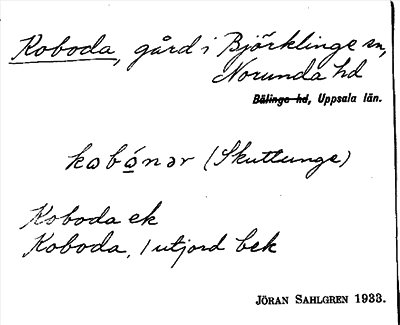 Koboda, gård i Björklinge sn,
Norunda hd
Bälinge hd, Uppsala län.
kabónər (Skuttunge)
Koboda ek
Koboda, 1 utjord bek
JÖRAN SAHLGREN 1933.